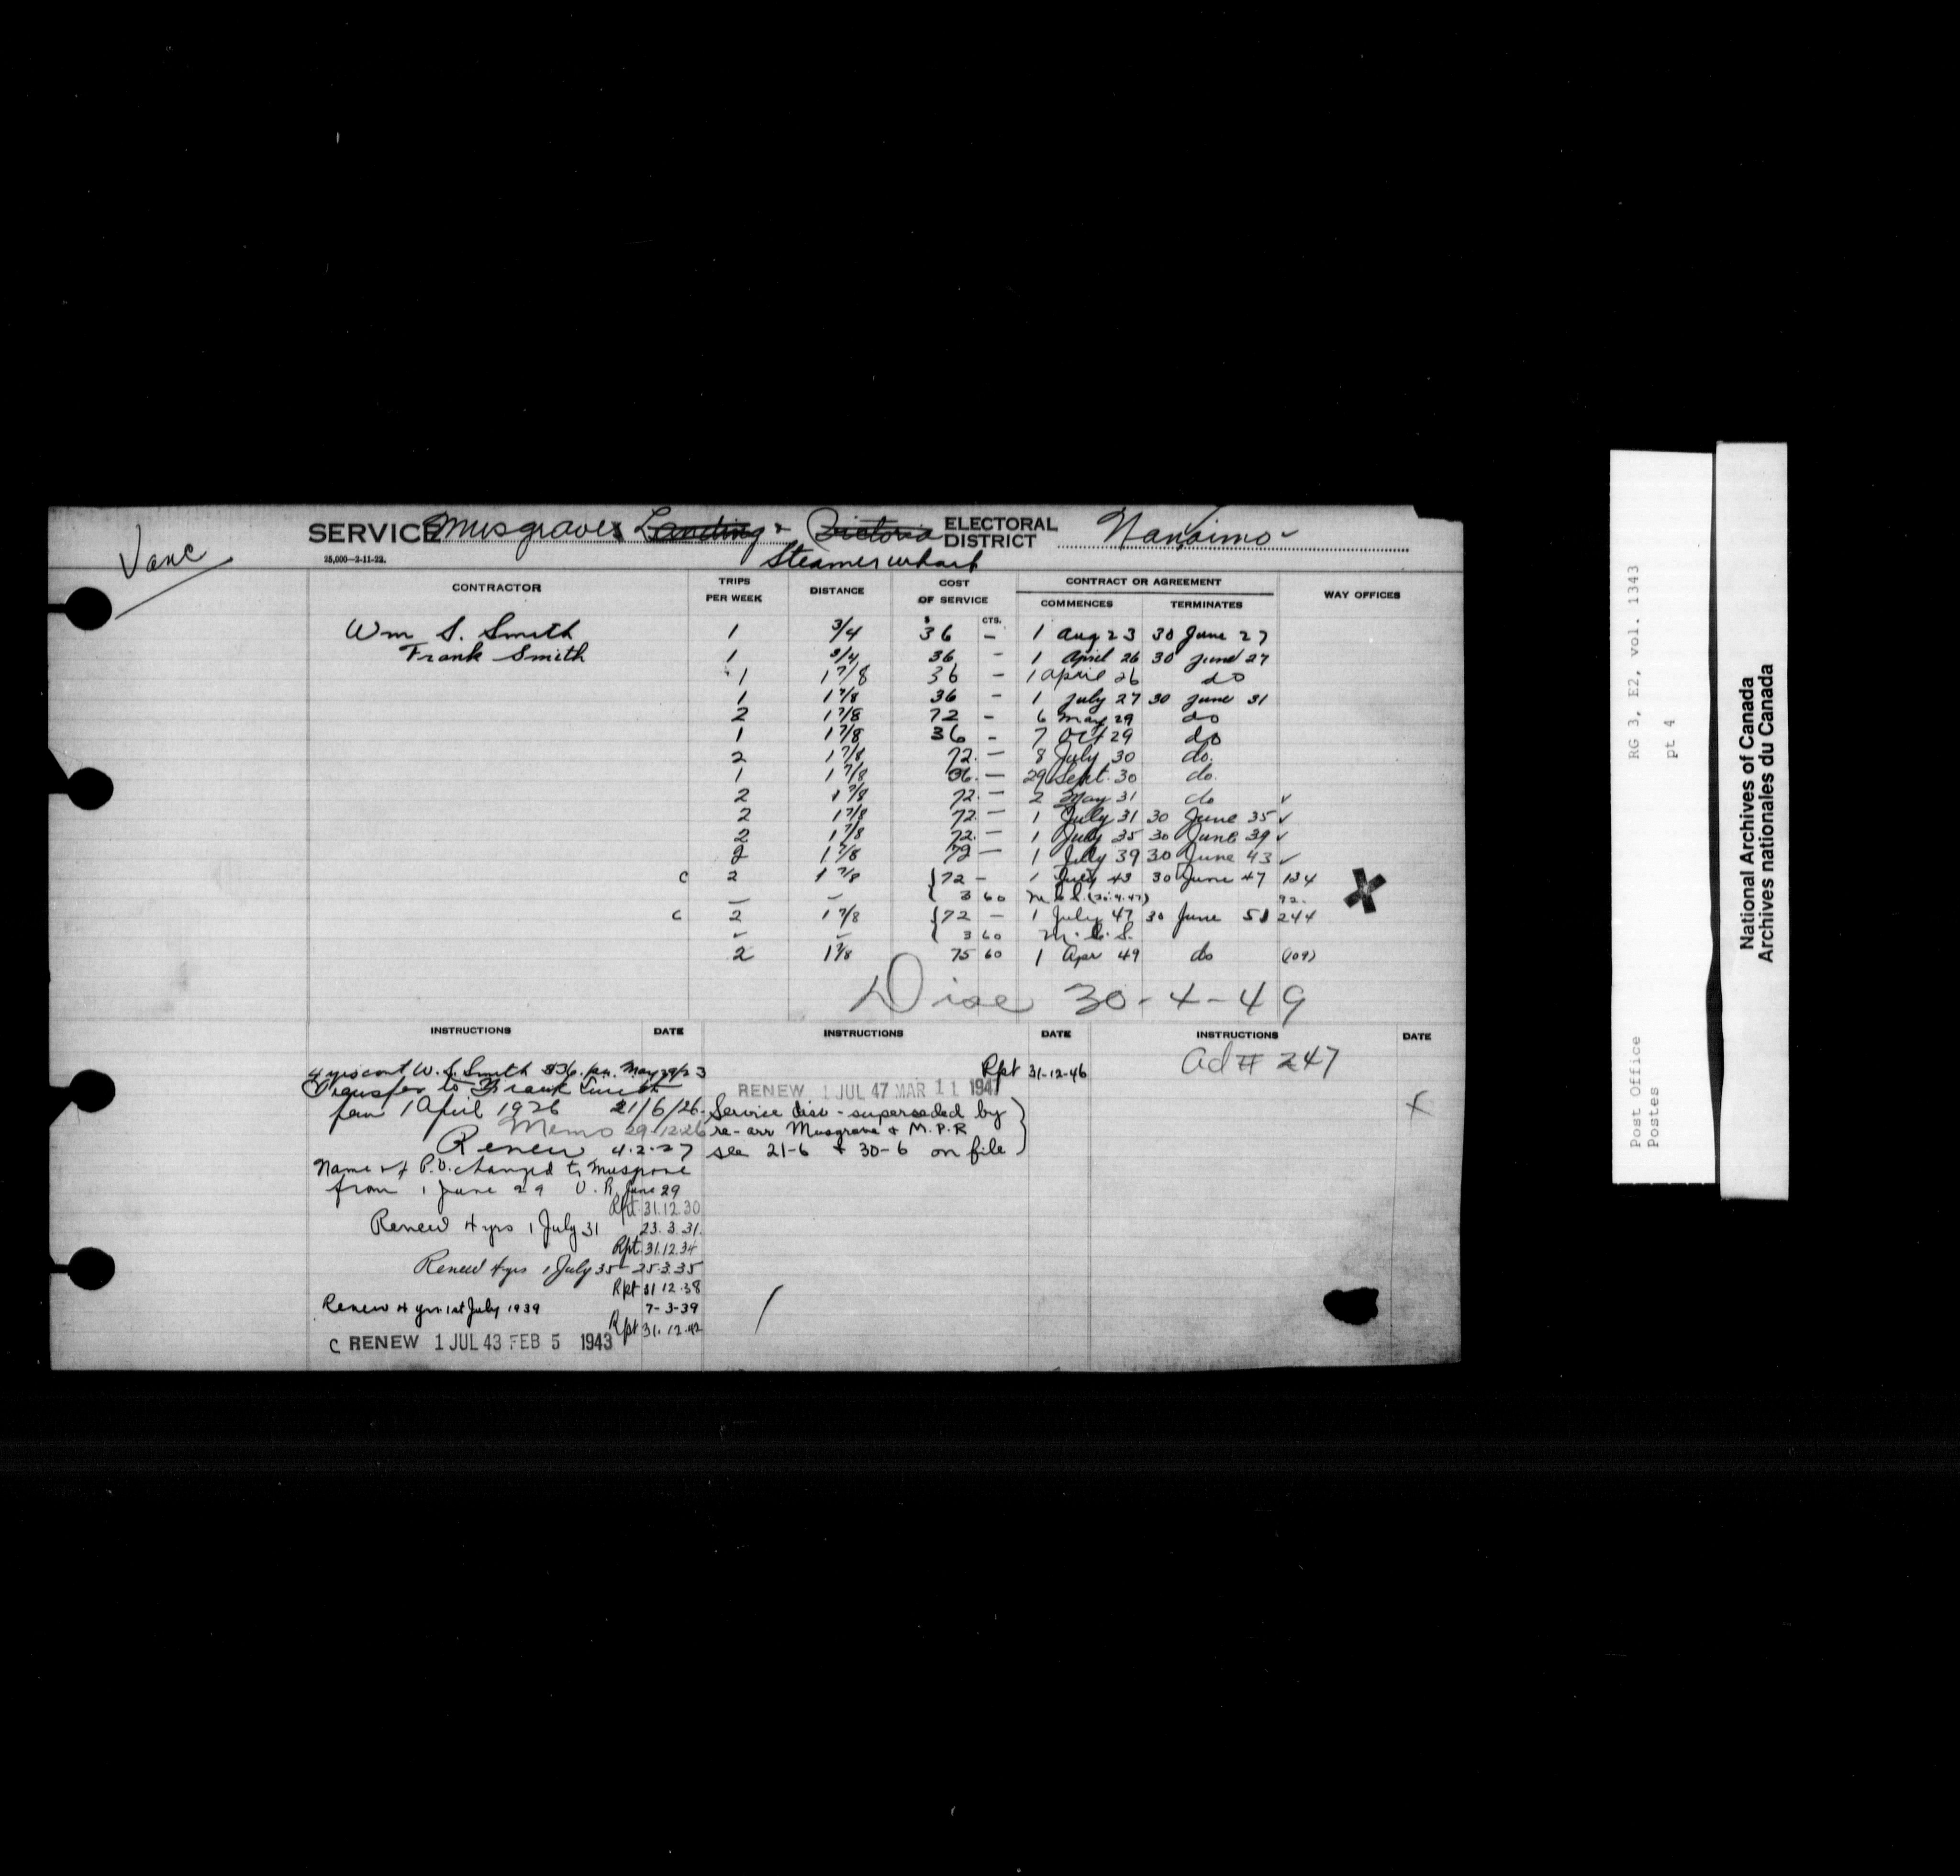 Vanc
SERVICE Musgraves Landing & Victoria ELECTORAL DISTRICT Nanaimo
Steamer wharf
25,000-2-11-22.
CONTRACTOR TRIPS PER WEEK DISTANCE COST OF SERVICE CONTRACT OR AGREEMENT WAY OFFICES
COMMENCES TERMINATES
$ CTS.
Wm S. Smith 1 3/4 36 - 1 Aug 23 30 June 27
Frank Smith 1 3/4 36 - 1 April 26 30 June 27
1 1 7/8 36 - 1 April 26 do
1 1 7/8 36 - 1 July 27 30 June 31
2 1 7/8 72 - 6 May 29 do
1 1 7/8 36 - 7 Oct 29 do
2 1 7/8 72. - 8 July 30 do.
1 1 7/8 36. - 29 Sept. 30 do.
2 1 7/8 72. - 2 May 31 do ✓
2 1 7/8 72. - 1 July 31 30 June 35 ✓
2 1 7/8 72. - 1 July 35 30 June 39 ✓
2 1 7/8 72 - 1 July 39 30 June 43 ✓
C 2 1 7/8 {72 - 1 July 43 30 June 47 134
- - 3 60 M.C.S. 92.
C 2 1 7/8 {72 - 1 July 47 30 June 51 244
- - 3 60 M.C.S.
2 1 7/8 75 60 1 Apr 49 do (109)
Disc 30-4-49
INSTRUCTIONS DATE INSTRUCTIONS DATE INSTRUCTIONS DATE
4 yrs cont W. S. Smith $36. pa. May 29/23
Transfer to Frank Smith
from 1 April 1926 21/6/26.
Memo 29-12-26
Renew 4-2-27
Name of P.O. changed to Musgrave
from 1 June 29 June 29
Rpt. 31.12.30
Renew 4 yrs 1 July 31 23.3.31.
Rpt. 31.12.34
Renew 4 yrs 1 July 35 - 25.3.35
Rpt 31 12.38
Renew 4 yrs. 1st July 1939 7-3-39
Rpt 31.12.42
C RENEW 1 JUL 43 FEB 5 1943
Rpt 31-12-46
RENEW 1 JUL 47 MAR 11 1947
Service disc - superseded by
re-arr Musgrave & M.P.R
see 21-6 & 30-6 on file
ad # 247
x
RG 3, E2, vol. 1343
pt 4
Post Office
Postes
National Archives of Canada
Archives nationales du Canada